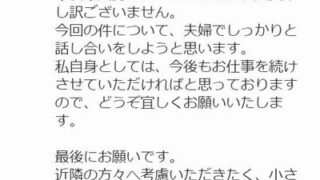 し訳ございません。
今回の件について、夫婦でしっかりと
話し合いをしようと思います。
私自身としては、今後もお仕事を続け
させていただければと思っております
ので、どうぞ宜しくお願いいたしま
す。
最後にお願いです。
近隣の方々へ考慮いただきたく、小さ